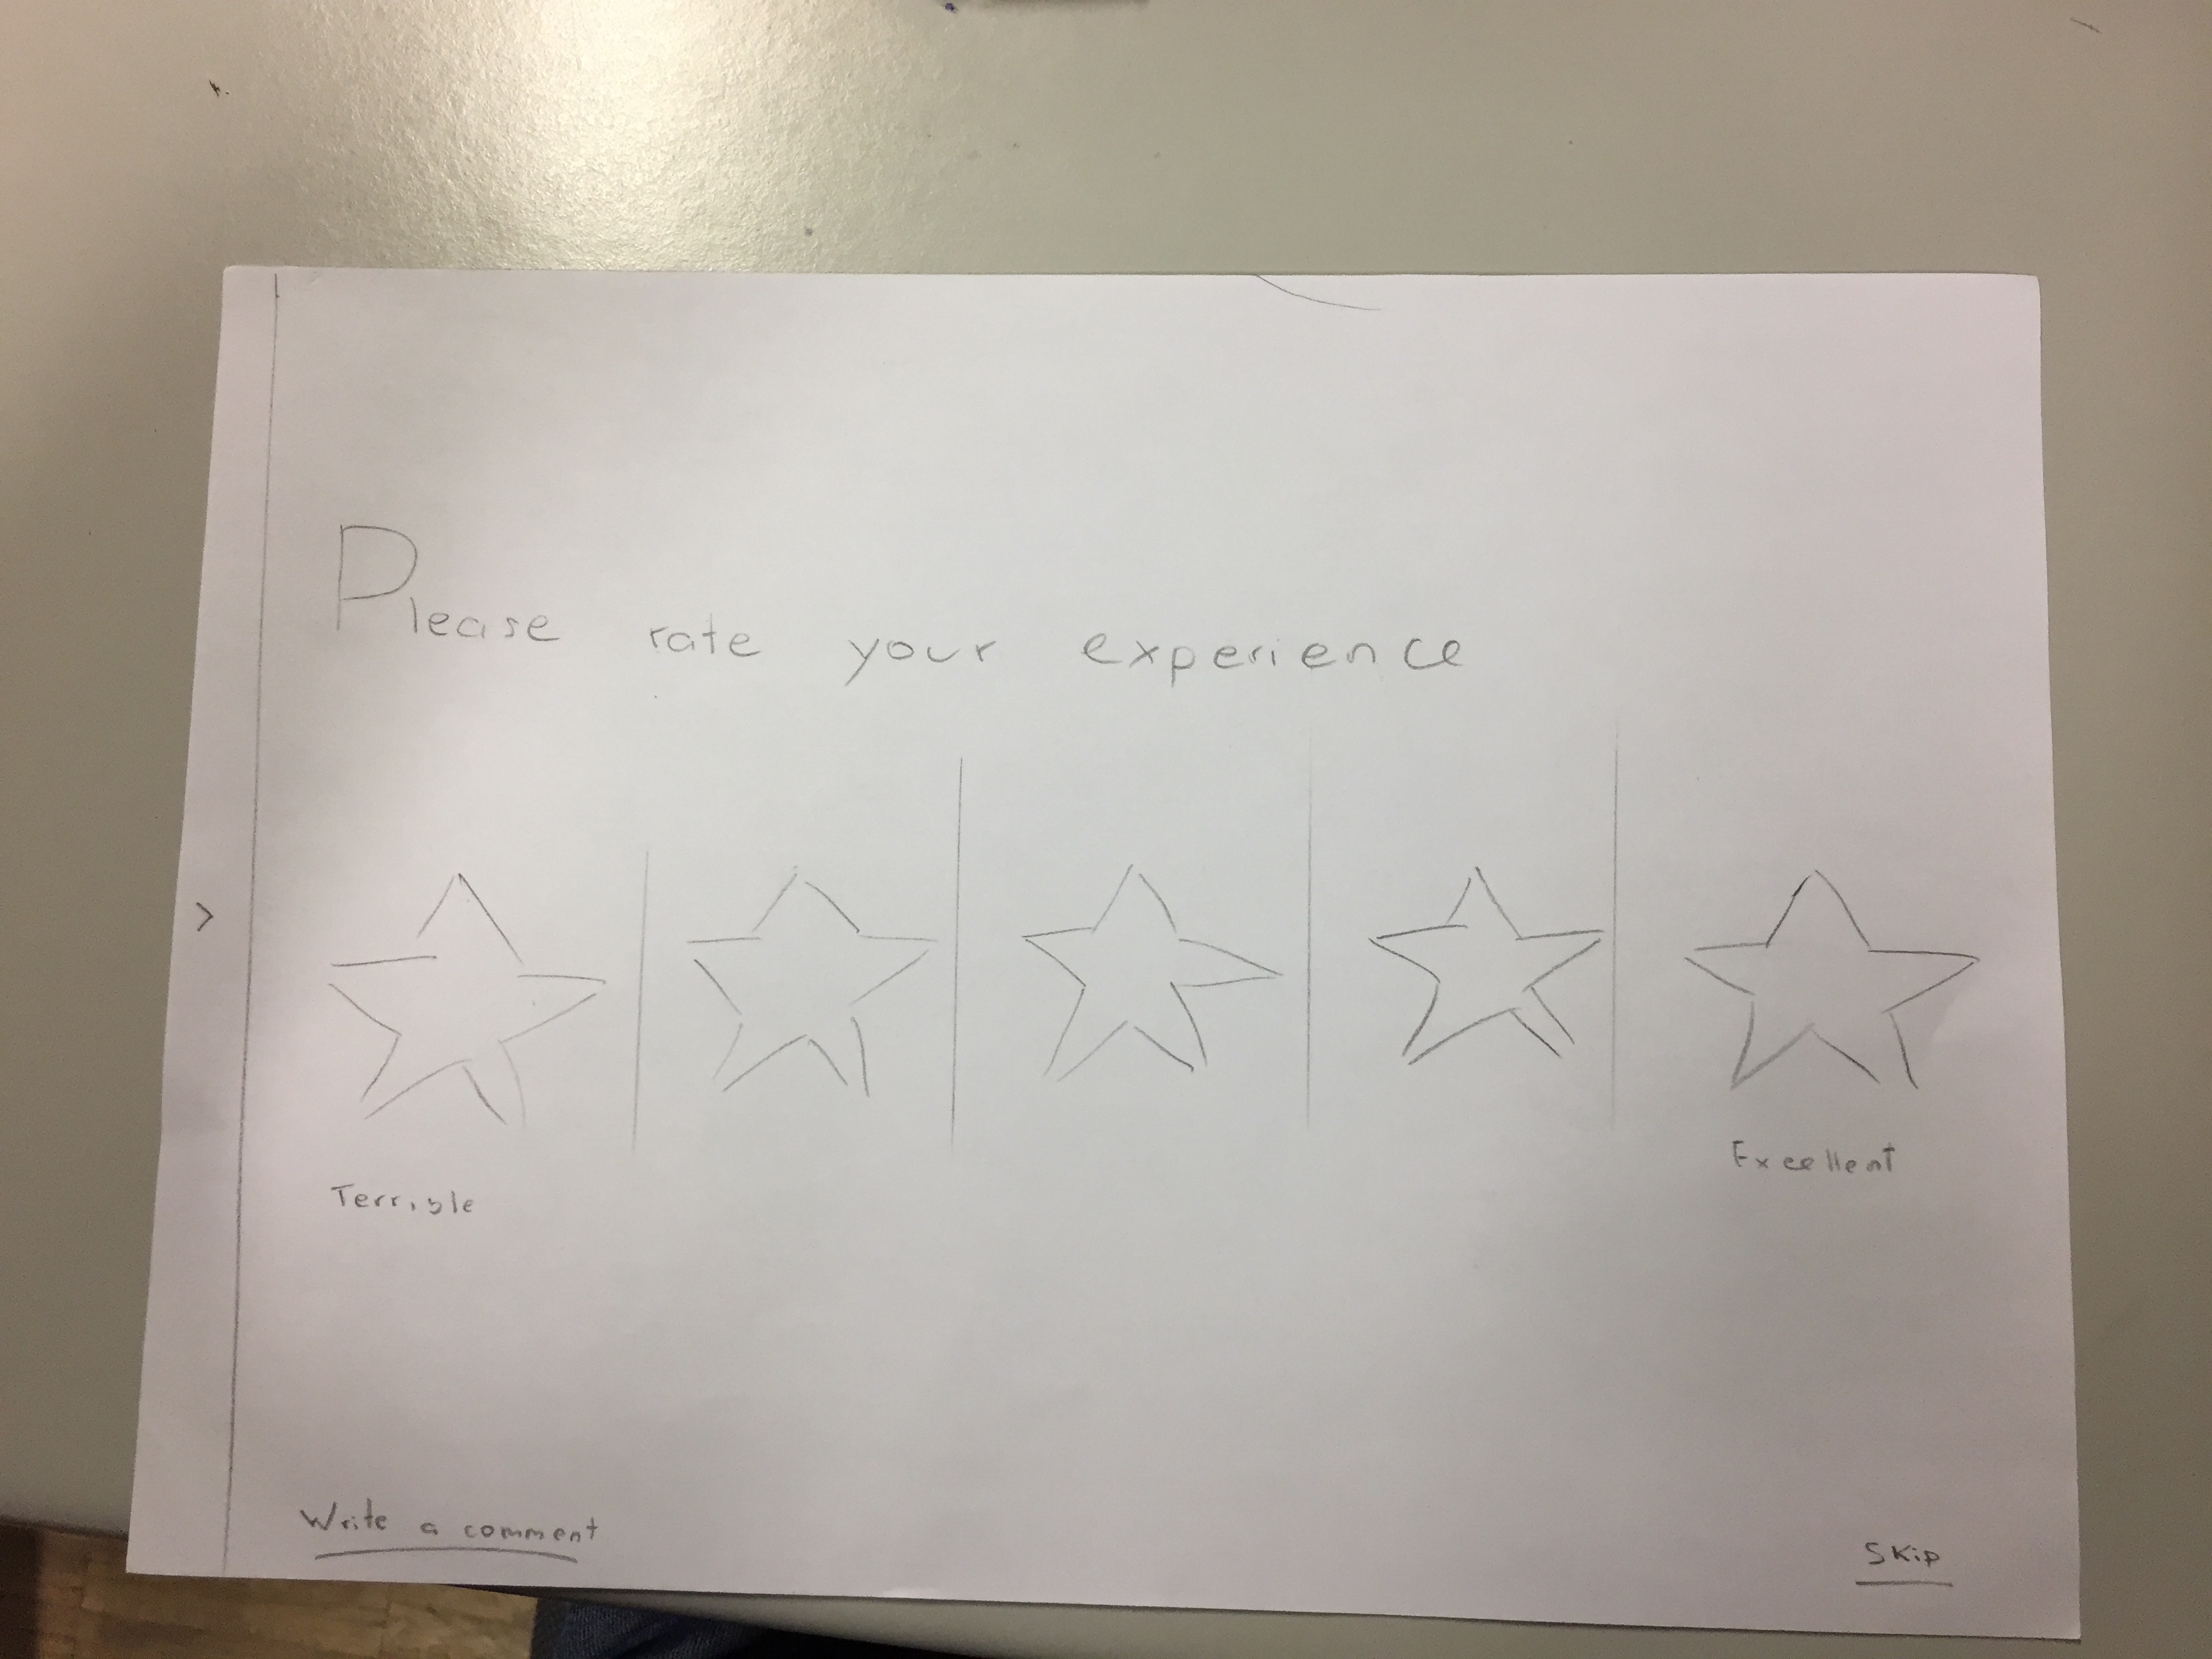 Please rate your experience
>
Terrible
Excellent
Write a comment
Skip